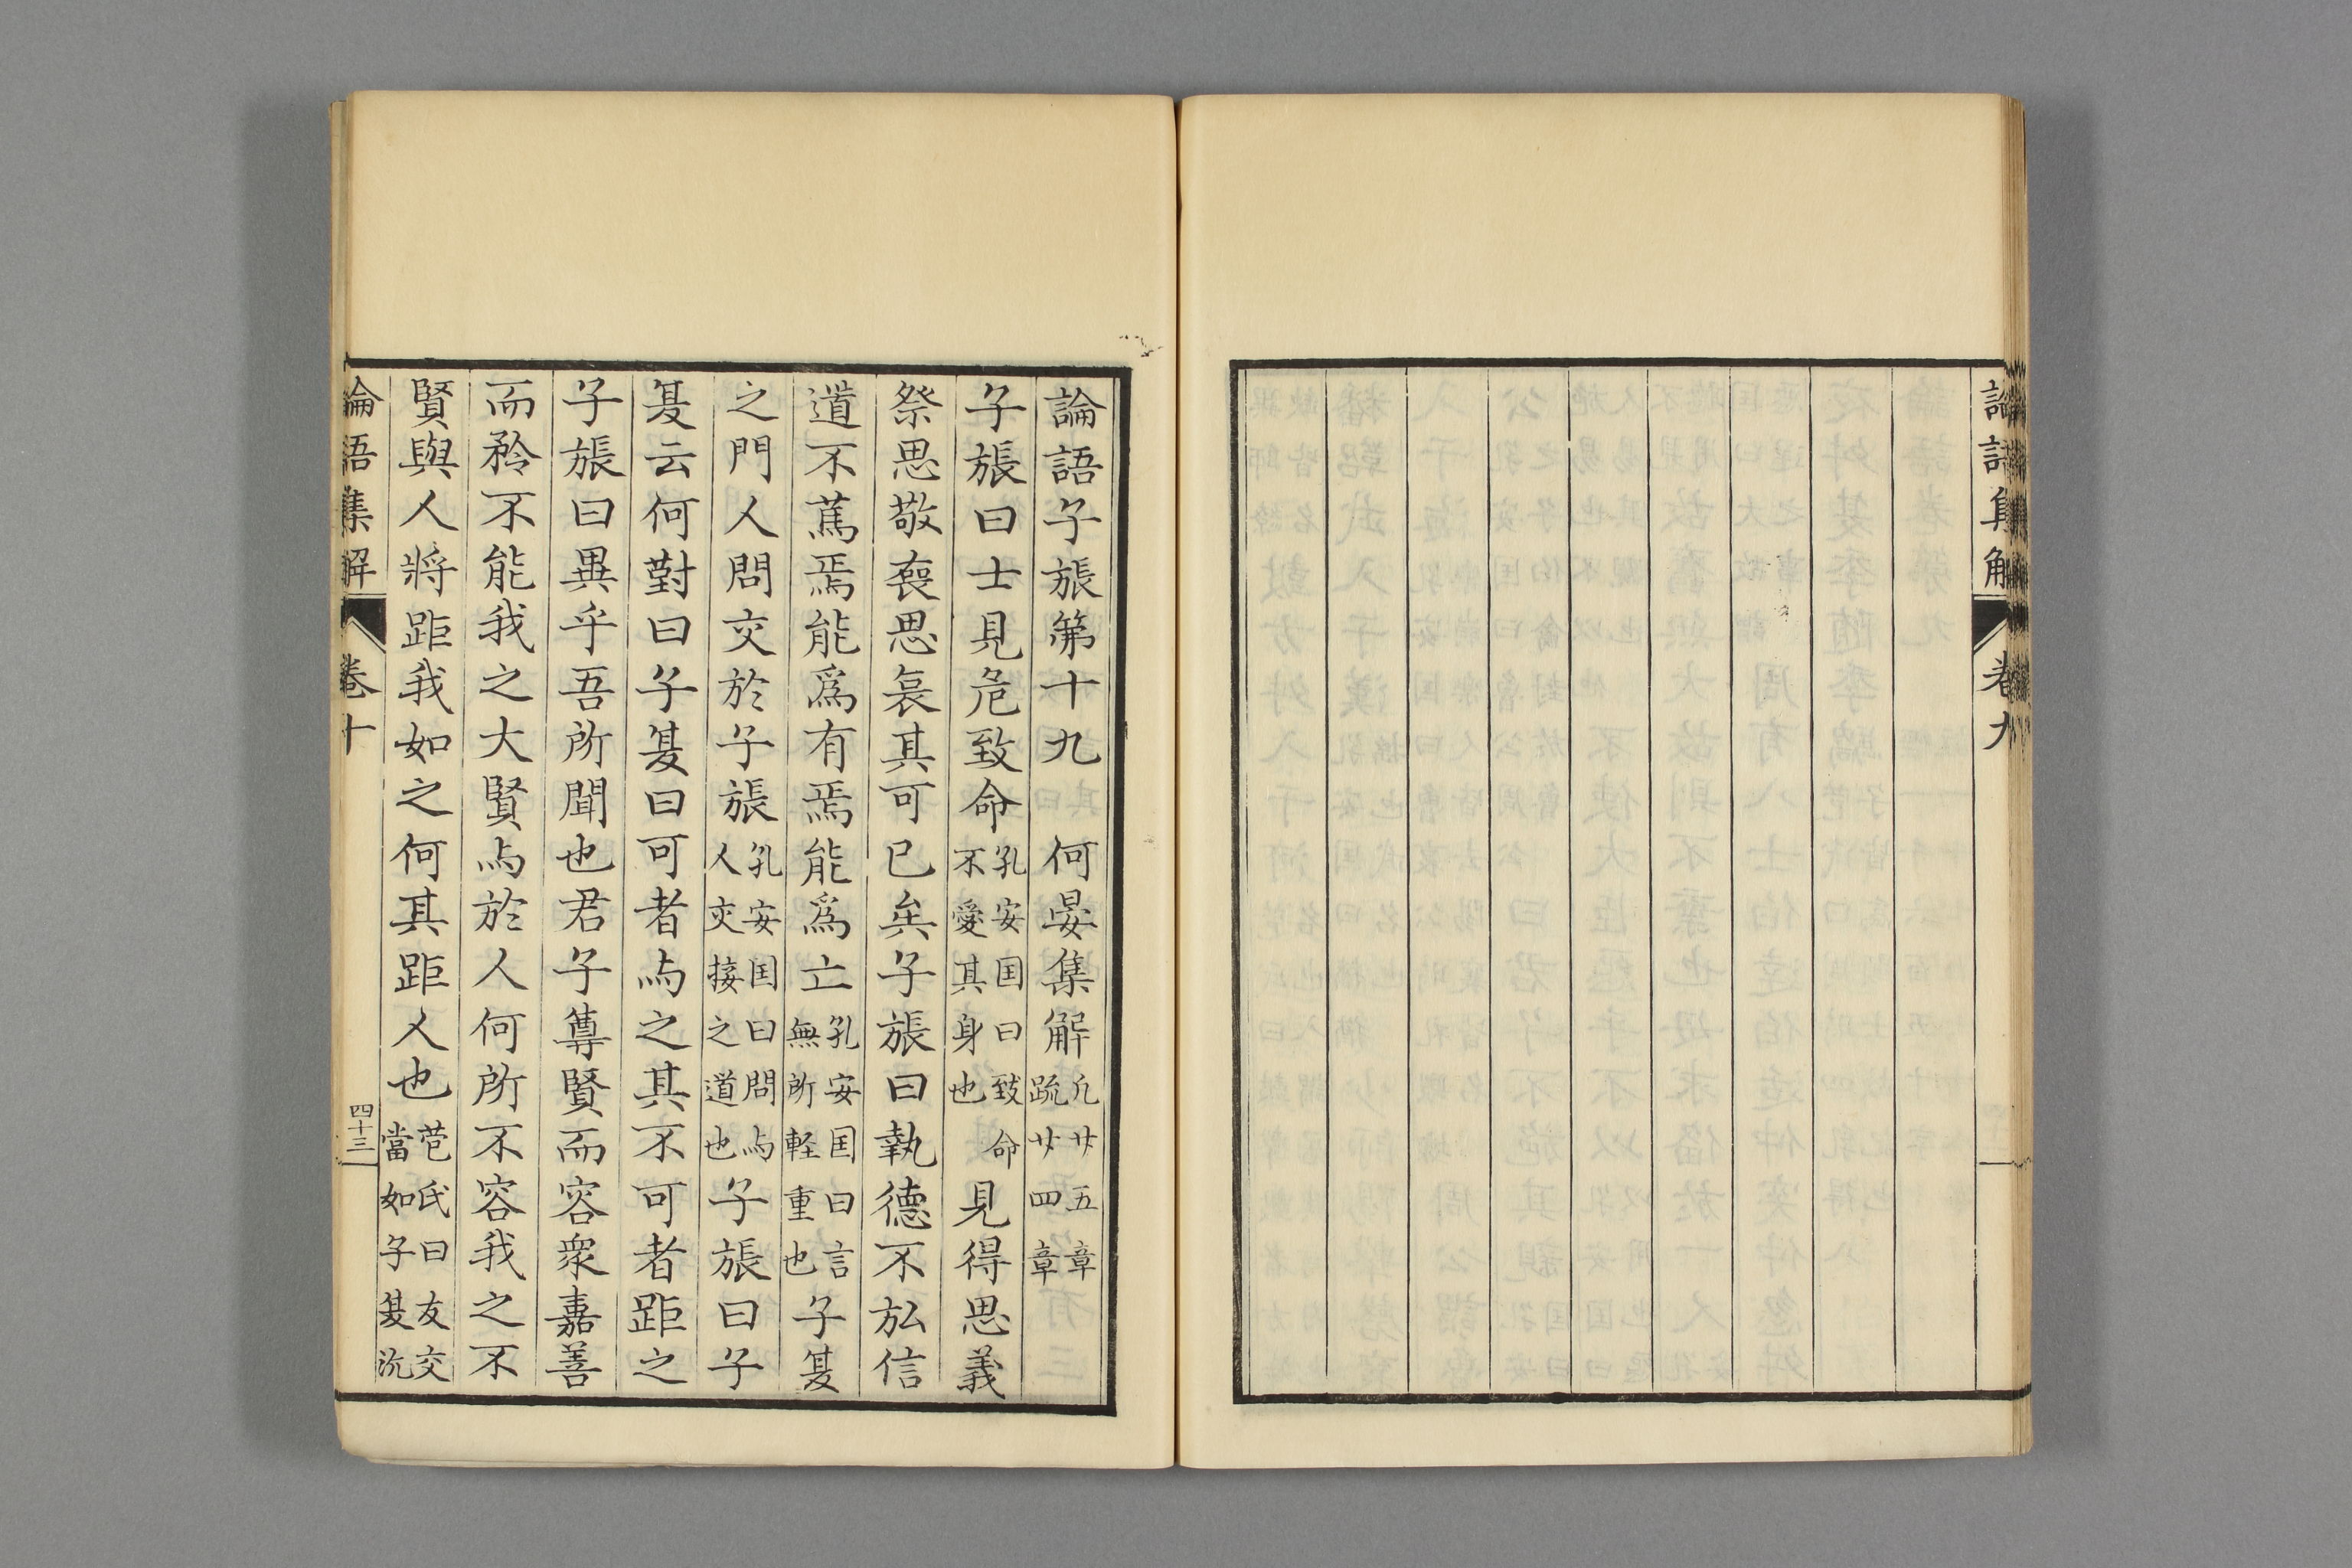 論語集解 卷九
論語子張第十九 何晏集解 凡廿五章 疏廿四章
子張曰士見危致命 孔安国曰致命 不愛其身也 見得思義
祭思敬喪思哀其可已矣子張曰執德不弘信
道不篤焉能爲有焉能爲亡 孔安国曰言 無所軽重也 子夏
之門人問交於子張 孔安国曰問与 人交接之道也 子張曰子
夏云何對曰子夏曰可者与之其不可者距之
子張曰異乎吾所聞也君子尊賢而容衆嘉善
而矜不能我之大賢与於人何所不容我之不
賢與人將距我如之何其距人也 苞氏曰友交 當如子夏汎
論語集解 卷十 四十三